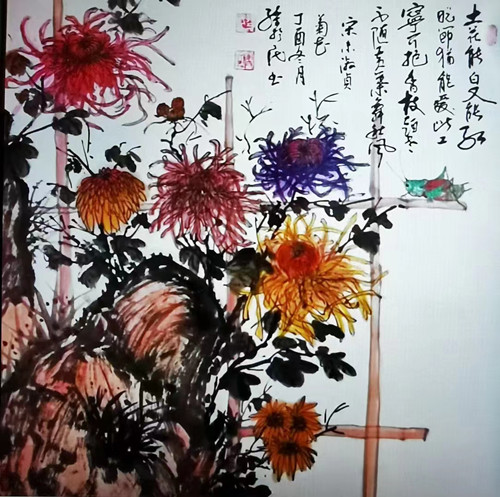 土花能白又能红
晚節猶能愛此工
寧可抱香枝頭老
不随黄葉舞秋風
宋朱淑貞
菊花
丁酉冬月